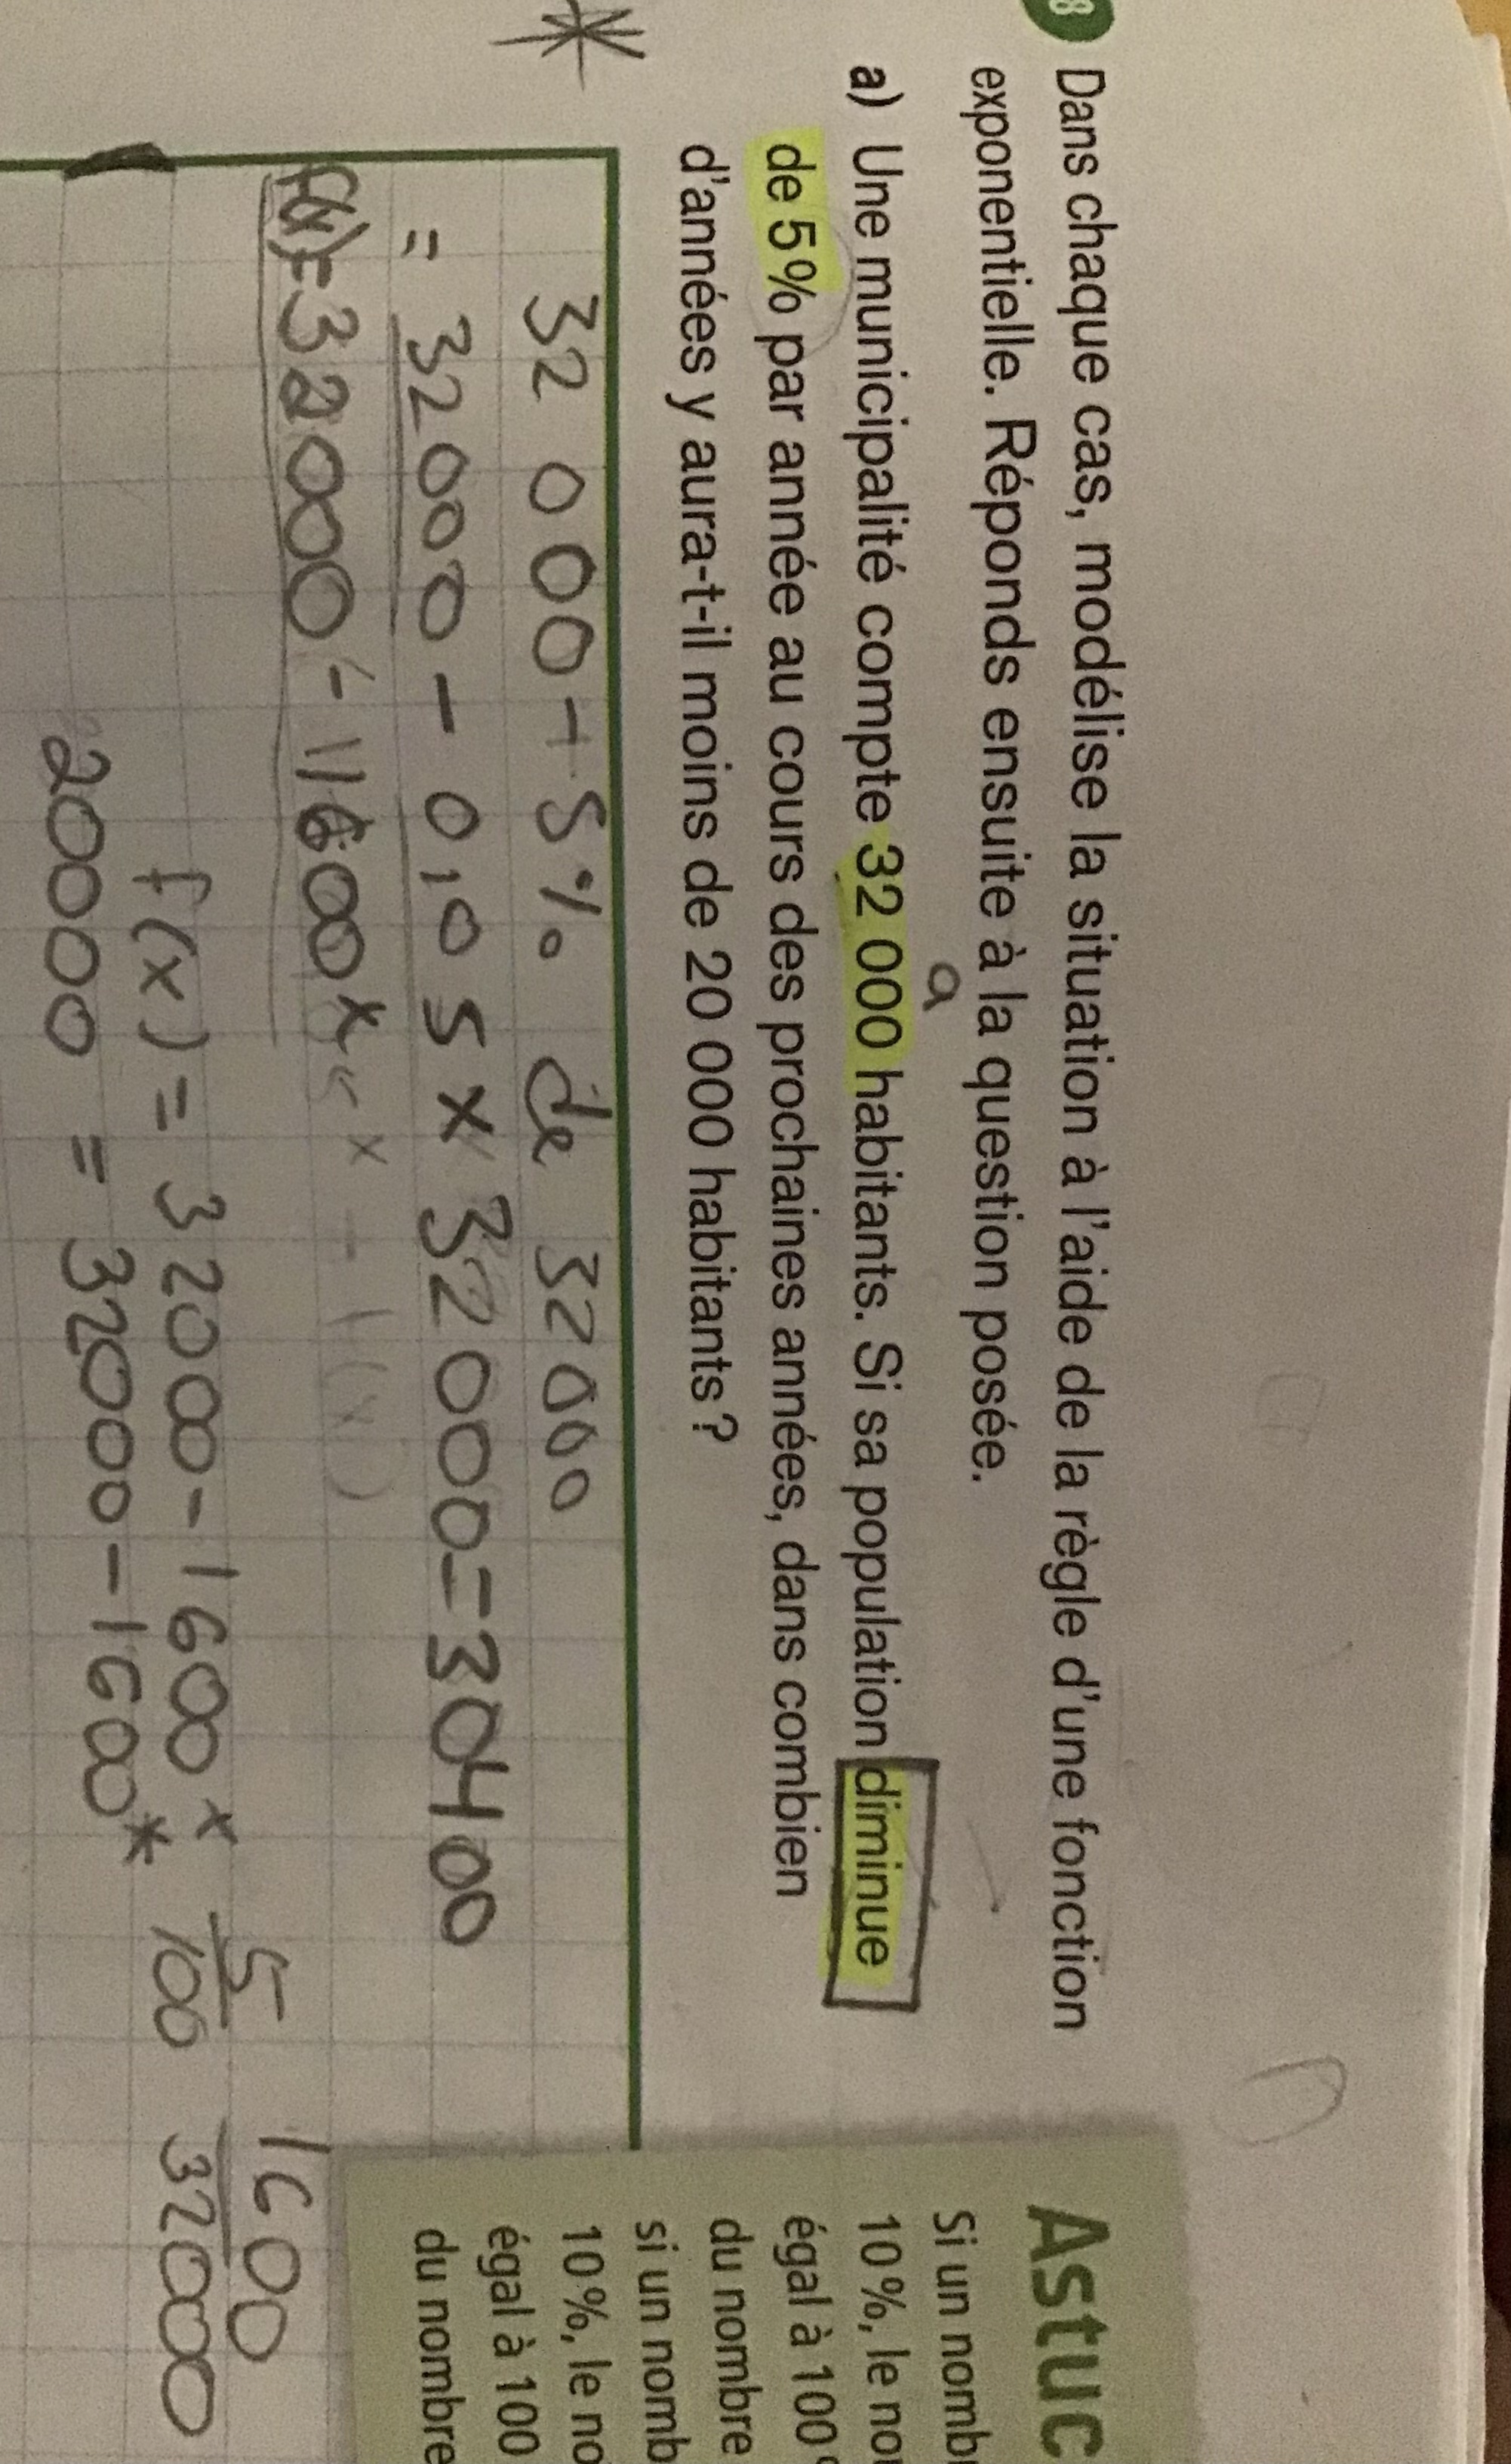 8 Dans chaque cas, modélise la situation à l'aide de la règle d'une fonction
exponentielle. Réponds ensuite à la question posée.
a
a) Une municipalité compte 32 000 habitants. Si sa population diminue
de 5 % par année au cours des prochaines années, dans combien
d'années y aura-t-il moins de 20 000 habitants ?
32 000 - 5% de 32000
= 32000 - 0,05 x 32000 = 30400
f(x) = 32000 - 1600 x
f(x) = 32000 - 1600 x 5/100 1600/32000
20000 = 32000 - 1600 *
Astuc
Si un nomb
10 %, le no
égal à 100
du nombre
si un nomb
10 %, le no
égal à 100
du nombre